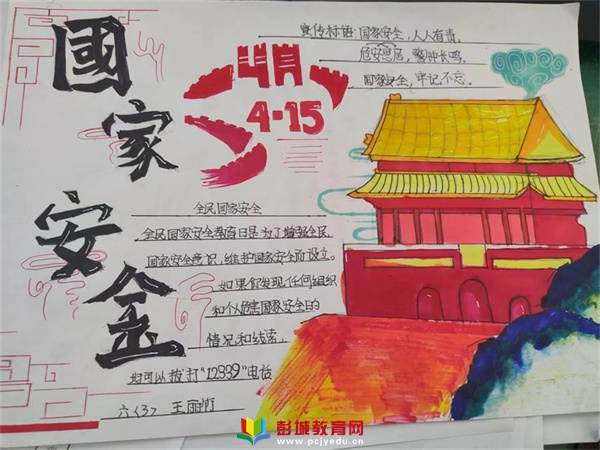 國家安全
4月
4·15
宣传标语:国家安全,人人有责。
危安思居,警钟长鸣。
国家安全,牢记不忘。
全民国家安全
全民国家安全教育日是为了增强全民
国家安全意识,维护国家安全而设立。
如果你发现任何组织
和个人危害国家安全的
情况和线索,
您可以拨打"12339"电话
六(3) 王丽
彭城教育网
www.pcjyedu.cn